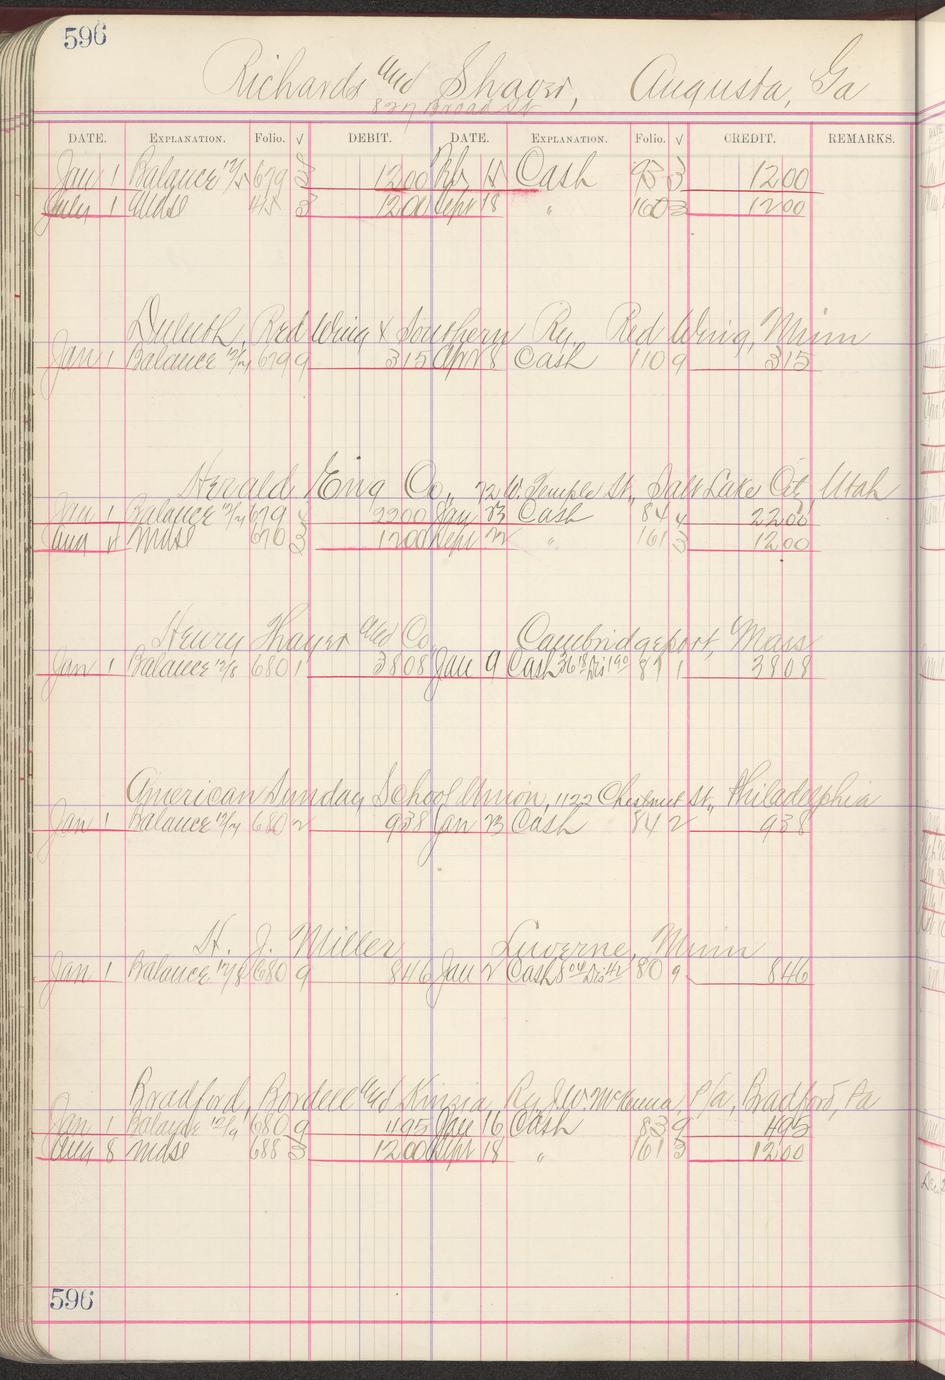 596
Richards and Shaver, Augusta, Ga
827 Broad St
DATE. EXPLANATION. Folio. √ DEBIT. DATE. EXPLANATION. Folio. √ CREDIT. REMARKS.
Jan 1 Balance 679 1200 Cash 93 3 1200
July 1 Mdse 3 1200 Sept 18 " 160 3 1200
Duluth, Red Wing & Southern Ry. Red Wing, Minn
Jan 1 Balance 12/7 679 9 315 Apr 8 Cash 110 9 315
Herald Eng Co., 72 W. Temple St., Salt Lake City, Utah
Jan 1 Balance 12/7 679 2200 Jan 23 Cash 84 4 2200
Aug Mdse 670 3 1200 Sept 22 " 161 3 1200
Henry Thayer and Co. Cambridgeport, Mass
Jan 1 Balance 12/8 680 1 3808 Jan 9 Cash 36 18 Dis 1 90 81 1 3808
American Sunday School Union, 1122 Chestnut St., Philadelphia
Jan 1 Balance 12/7 680 2 938 Jan 23 Cash 84 2 938
H. J. Miller Luverne, Minn
Jan 1 Balance 12/8 680 9 846 Jan 2 Cash 8 04 Dis 42 80 9 846
Bradford, Bordell and Kinzua Ry J. W. McKenna, P/a, Bradford, Pa
Jan 1 Balance 12/9 680 9 495 Jan 16 Cash 83 9 495
Aug 8 Mdse 688 3 1200 Sept 18 " 161 3 1200
596